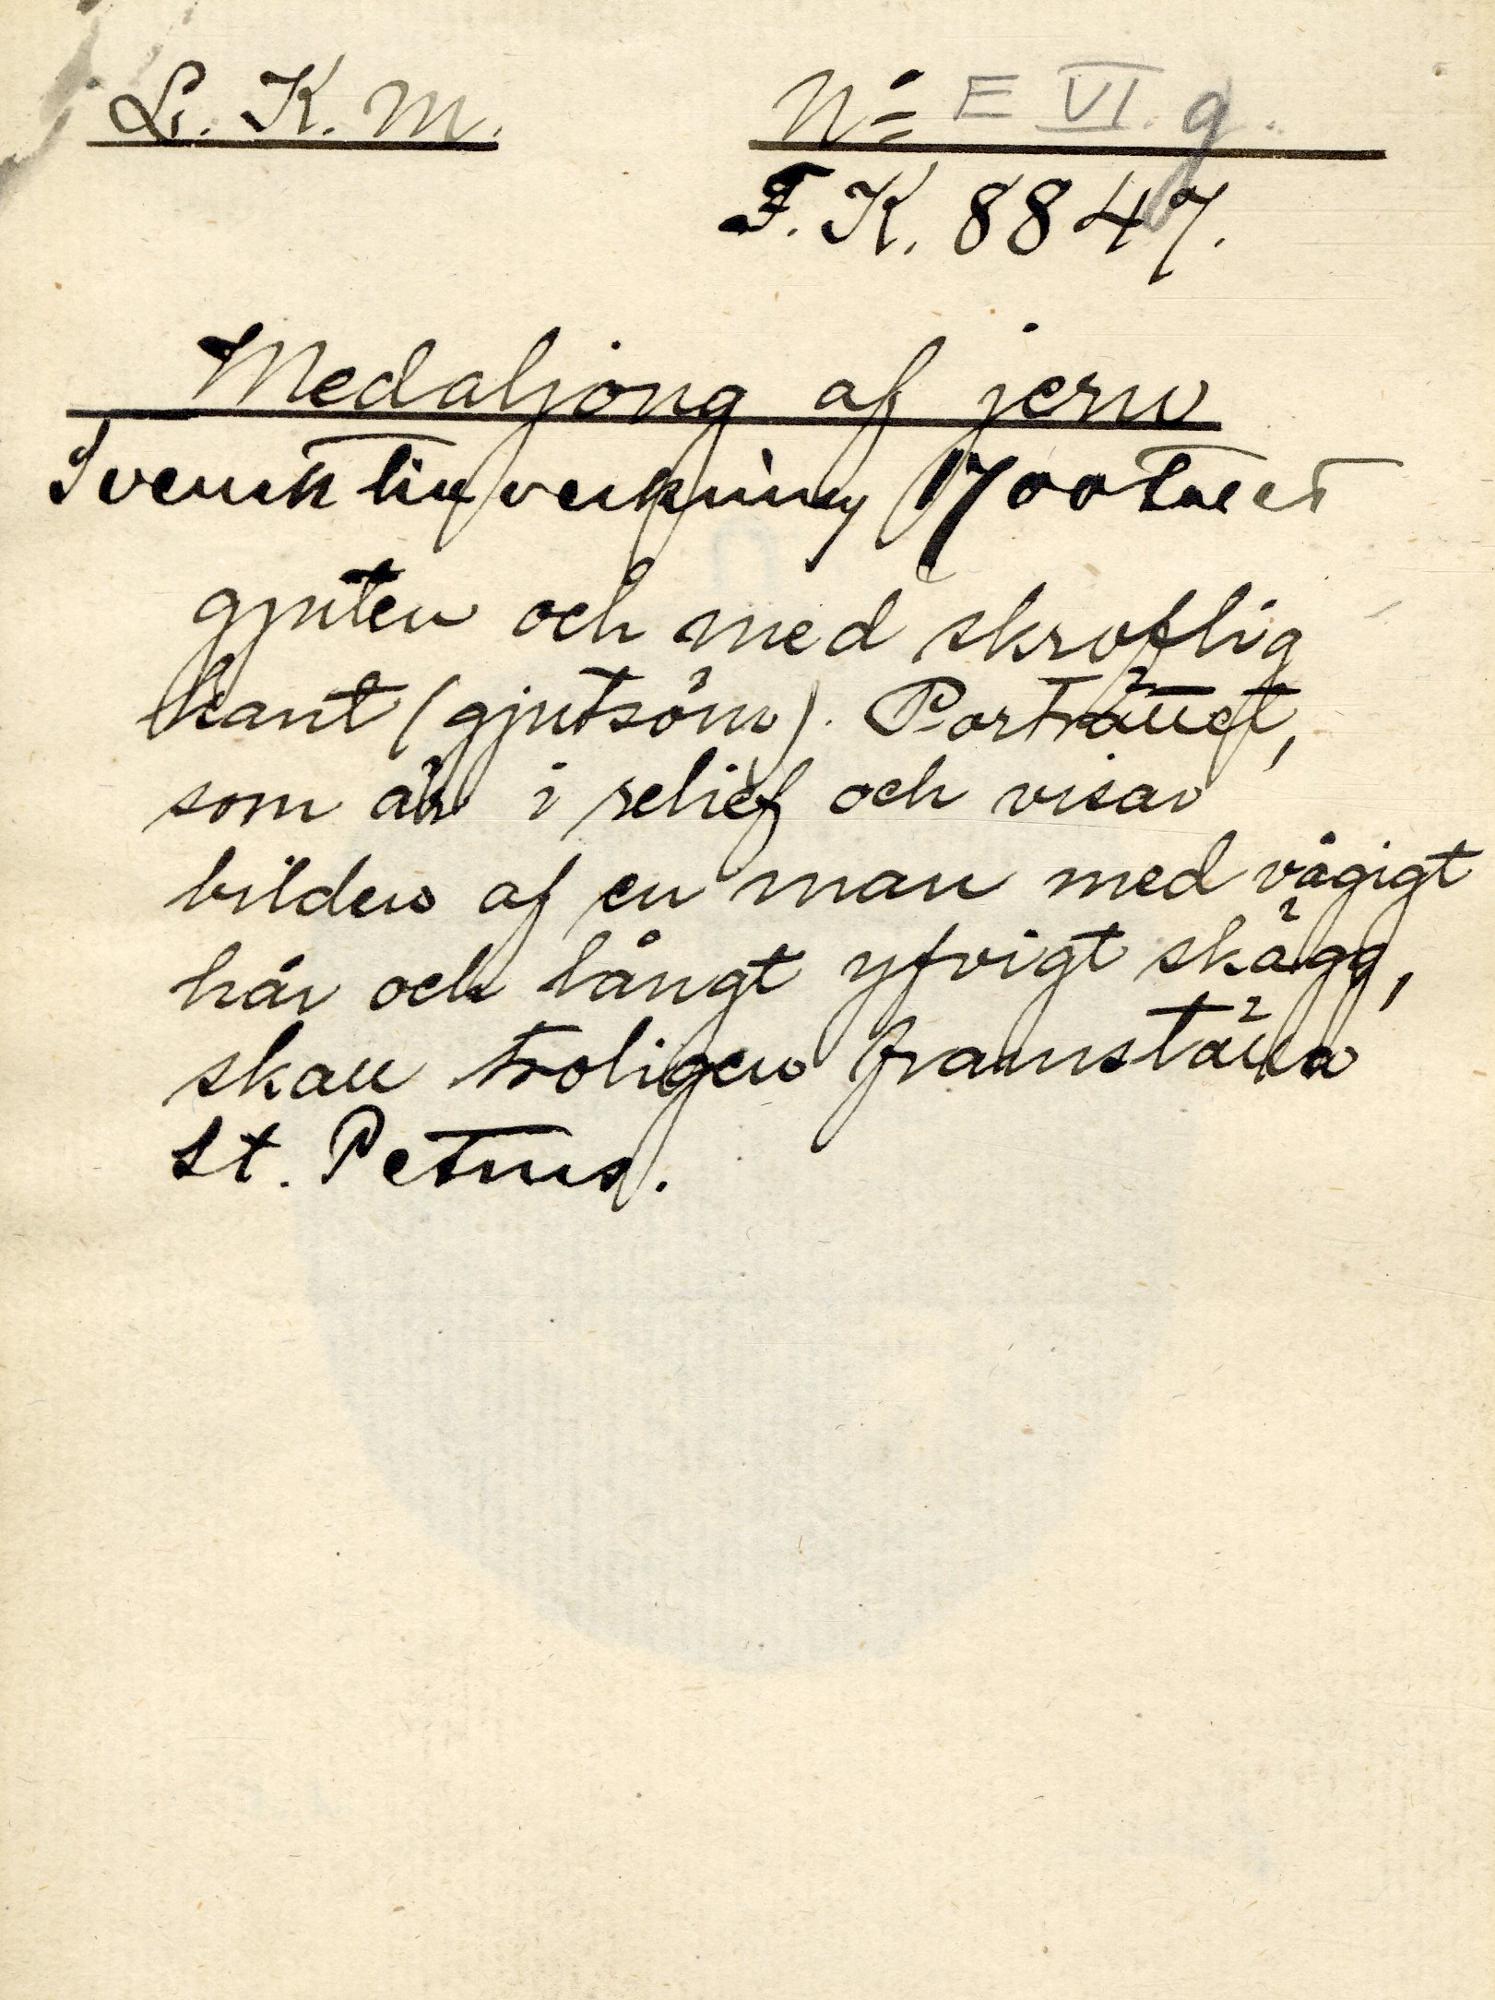 L. K. M.
No E VI. g.
F. K. 8847.
Medaljong af jern
Svensk tillverkning 1700talet
gjuten och med skroflig
kant (gjutsöm). Porträttet,
som är i relief och visar
bilden af en man med vågigt
hår och långt yfvigt skägg,
skall troligen framställa
St. Petrus.